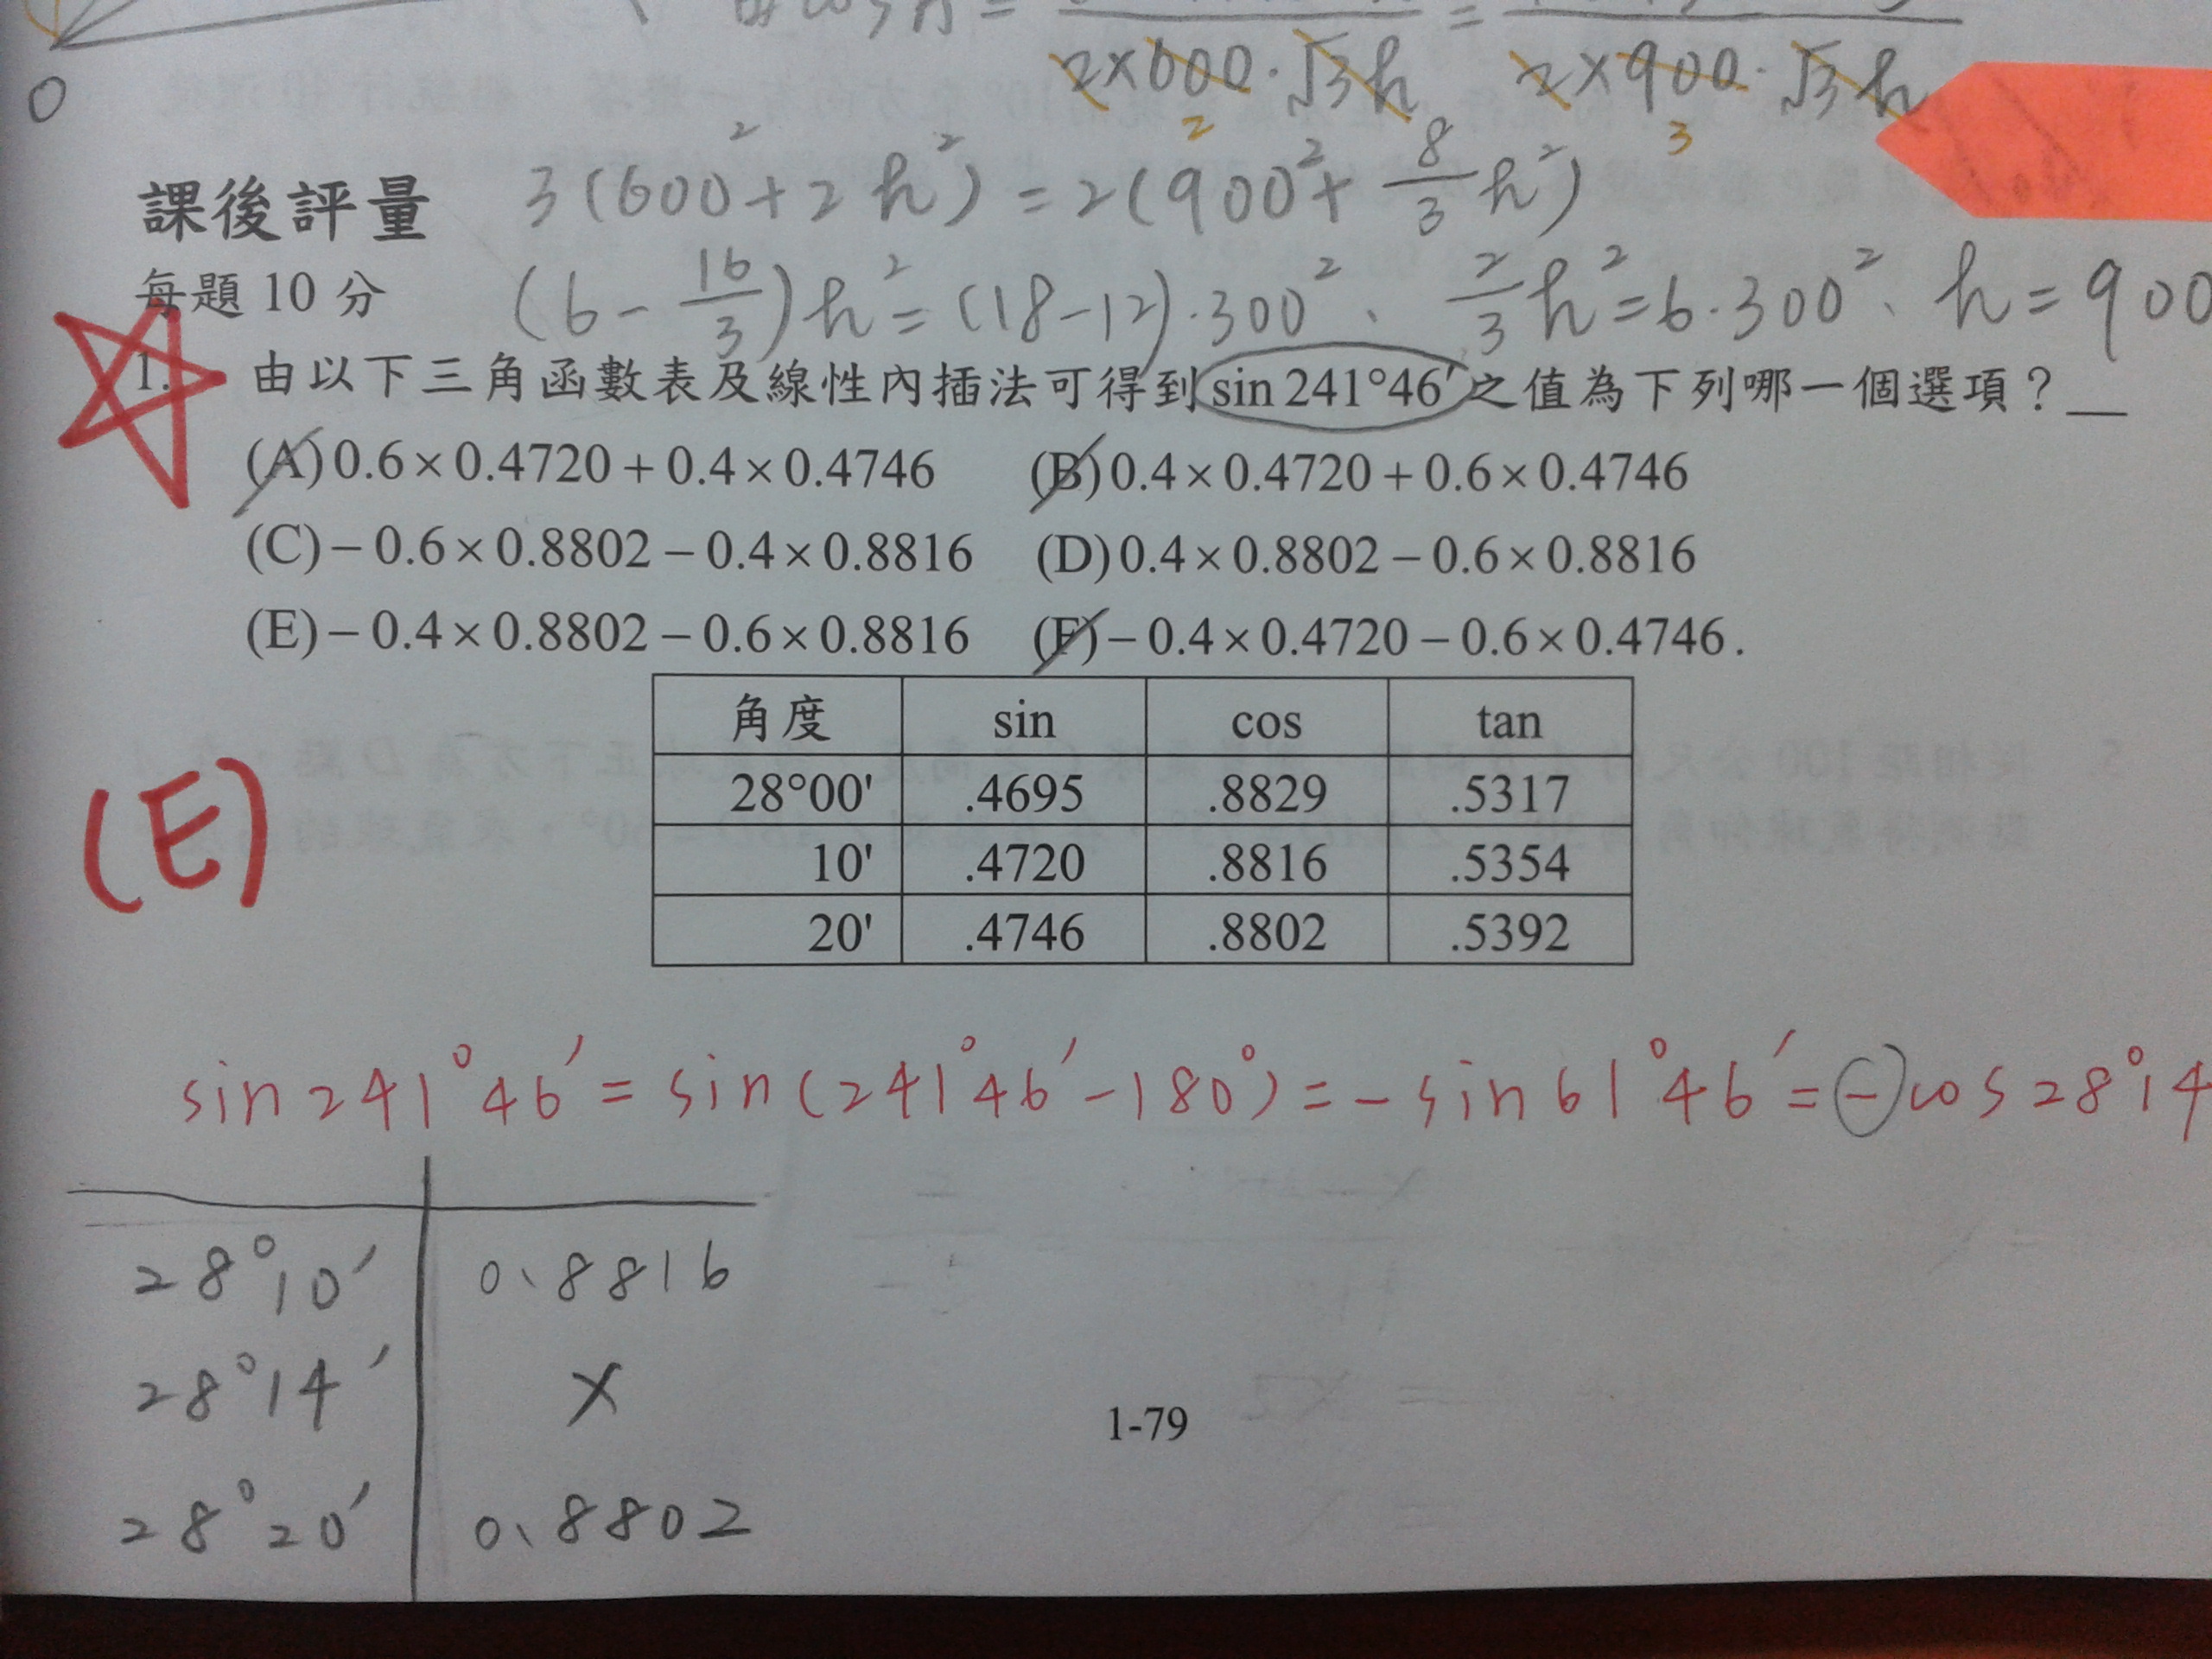 2×600·√3h = 2×900·√3h
2 3
O
3(600²+2h²)=2(900²+8/3h²)
課後評量
每題 10 分
(6-16/3)h²=(18-12)·300²、2/3h²=6·300²、h=900
1. 由以下三角函數表及線性內插法可得到 sin 241°46' 之值為下列哪一個選項？__
(A) 0.6×0.4720+0.4×0.4746 (B) 0.4×0.4720+0.6×0.4746
(C) −0.6×0.8802−0.4×0.8816 (D) 0.4×0.8802−0.6×0.8816
(E) −0.4×0.8802−0.6×0.8816 (F) −0.4×0.4720−0.6×0.4746.
角度 sin cos tan
28°00' .4695 .8829 .5317
10' .4720 .8816 .5354
20' .4746 .8802 .5392
(E)
sin241°46'=sin(241°46'-180°)=-sin61°46'=-cos28°14
28°10' 0.8816
28°14' x
28°20' 0.8802
1-79